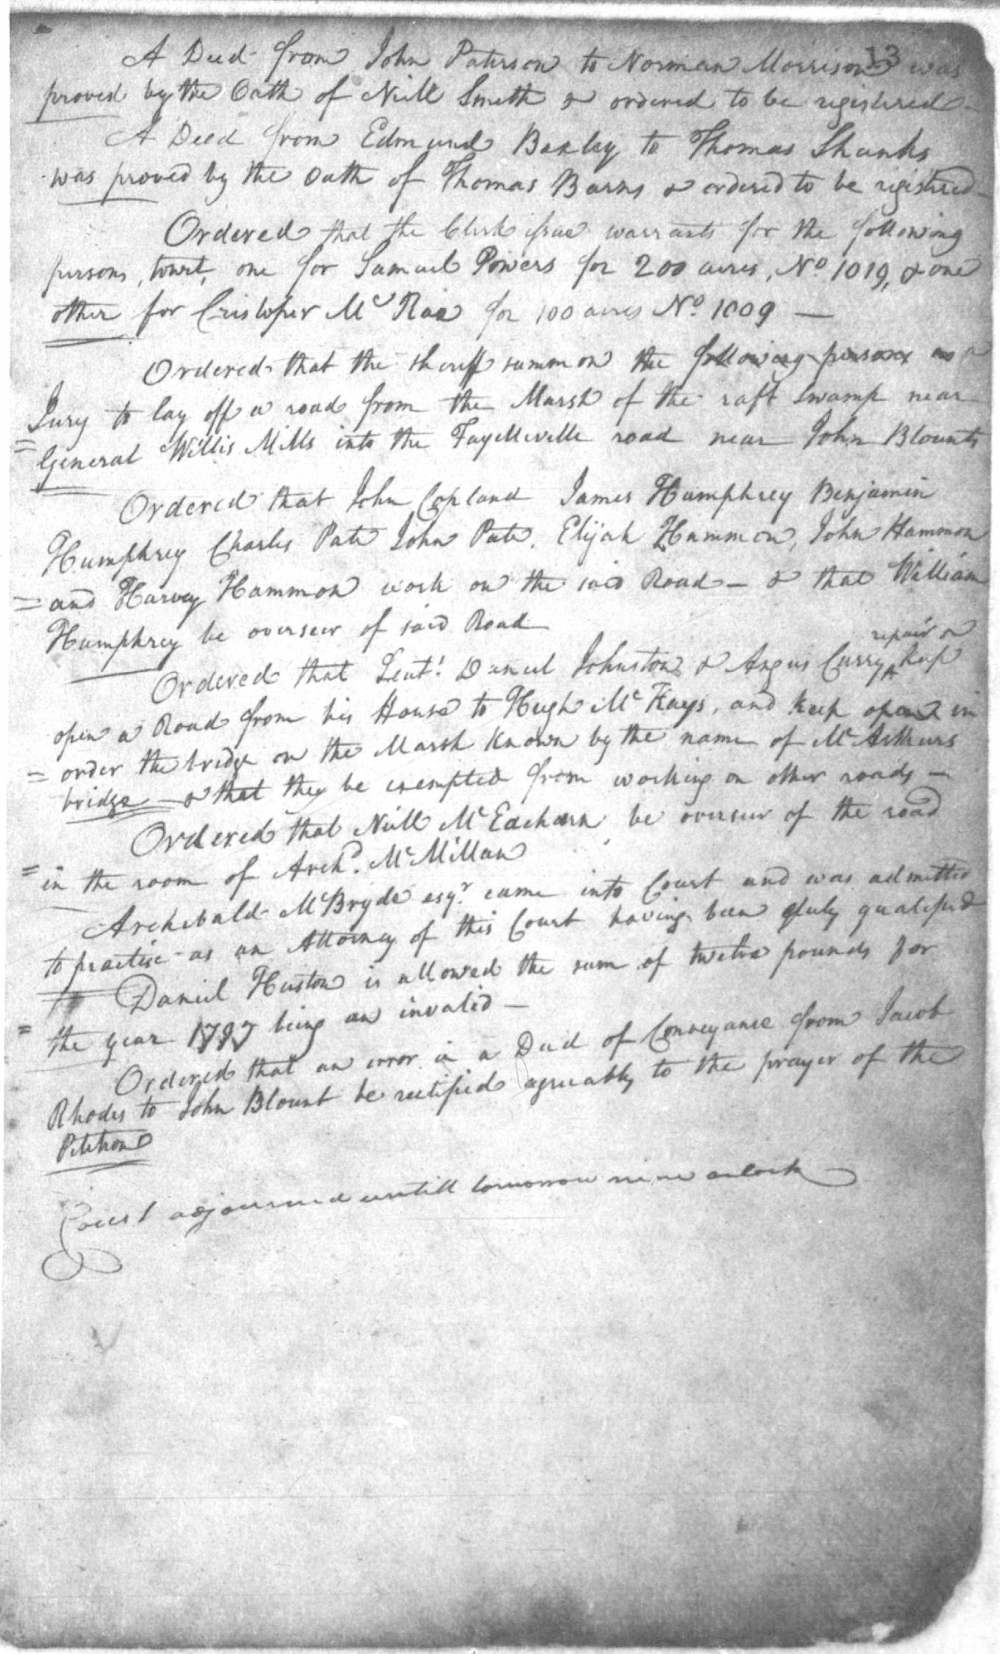 33
A Deed from John Paterson to Norman Morrison was
proved by the Oath of Niell Smith & ordered to be registered
A Deed from Edmund Baxley to Thomas Shanks
was proved by the Oath of Thomas Barns & ordered to be registred
Ordered that the Clerk issue warrants for the following
persons, towit, one for Samuel Powers for 200 acres, No 1019, & one
other for Cristoper Mc Rae for 100 acres No 1009 —
Ordered that the sheriff summon the following persons as a
Jury to lay off a road from the Marsh of the raft swamp near
General Willis Mills into the Fayetteville road near John Blounts
Ordered that John Copland James Humphrey Benjamin
Humphrey Charles Pate John Pate, Elijah Hammon, John Hammon
= and Harvey Hammon work on the said Road — & that William
Humphrey be overseer of said Road
repair &
Ordered that Leut. Daniel Johnston & Angus Curry ^ keep
open a Road from his House to Hugh Mc Kays, and keep open in
= order the bridge on the Marsh known by the name of Mc Arthurs
bridge — & that they be exempted from working on other roads —
Ordered that Niell Mc Eachern be overseer of the road
= in the room of Archd. Mc Millan
Archibald McBryde esqr came into Court and was admitted
to practise as an Attorney of this Court having been duly qualified
Daniel Huston is allowed the sum of twelve pounds for
= the year 1797 being an invalid —
Ordered that an error in a Deed of Conveyance from Jacob
Rhodes to John Blount be rectified agreeably to the prayer of the
Petition
Court adjourned untill tomorrow nine oclock